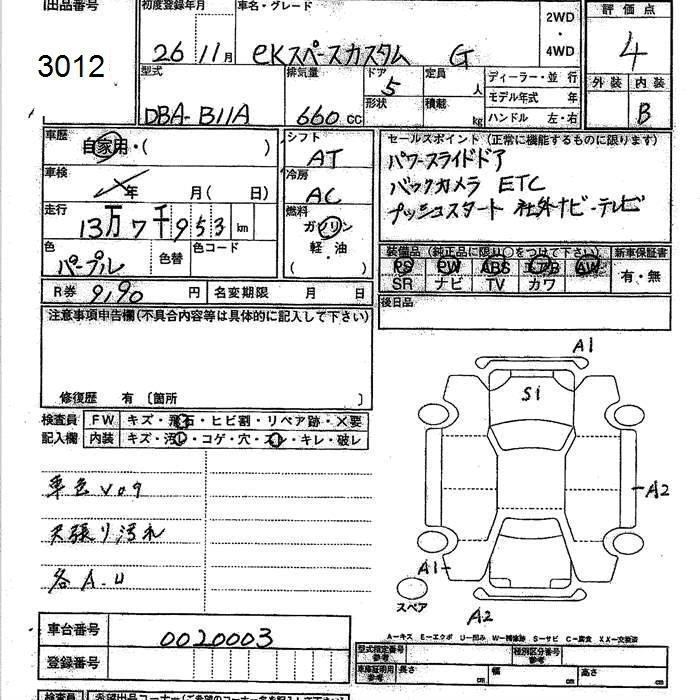 出品番号 初度登録年月 車名・グレード 評価点
3012 26 11月 eKスペースカスタム G 2WD・4WD 4
型式 排気量 ドア 定員 人 ディーラー・並行 外装 内装
DBA-B11A 660cc 5 形状 積載 kg モデル年式 年 B
ハンドル 左・右
車歴 自家用・( ) シフト AT
セールスポイント (正常に機能するものに限ります)
パワースライドドア
バックカメラ ETC
プッシュスタート 社外ナビ・テレビ
車検 年 月 ( 日) 冷房 AC
走行 13万7千953km 燃料 ガソリン 軽・油 ( )
色 パープル 色替 色コード
装備品 (純正品に限り○をつけて下さい) 新車保証書
PS PW ABS エアB AW 有・無
SR ナビ TV カワ
R券 9,190円 名変期限 月 日
後日品
注意事項申告欄(不具合内容等は具体的に記入して下さい)
修復歴 有 〔箇所 〕
検査員 FW キズ・飛石・ヒビ割・リペア跡・×要
記入欄 内装 キズ・汚レ・コゲ・穴・スレ・キレ・破レ
車色V09
天張り汚れ
各A.U
A1
S1
A2
A1
スペア
A2
車台番号 0020003
登録番号
A-キズ E-エクボ U-凹み W-補修跡 S-サビ C-腐食 XX-交換済
型式指定番号 参考 類別区分番号 参考
車庫証明用 参考 長さ cm 幅 cm 高さ cm
検査員 希望出品コーナー(ご希望のコーナー名を記入して下さい)